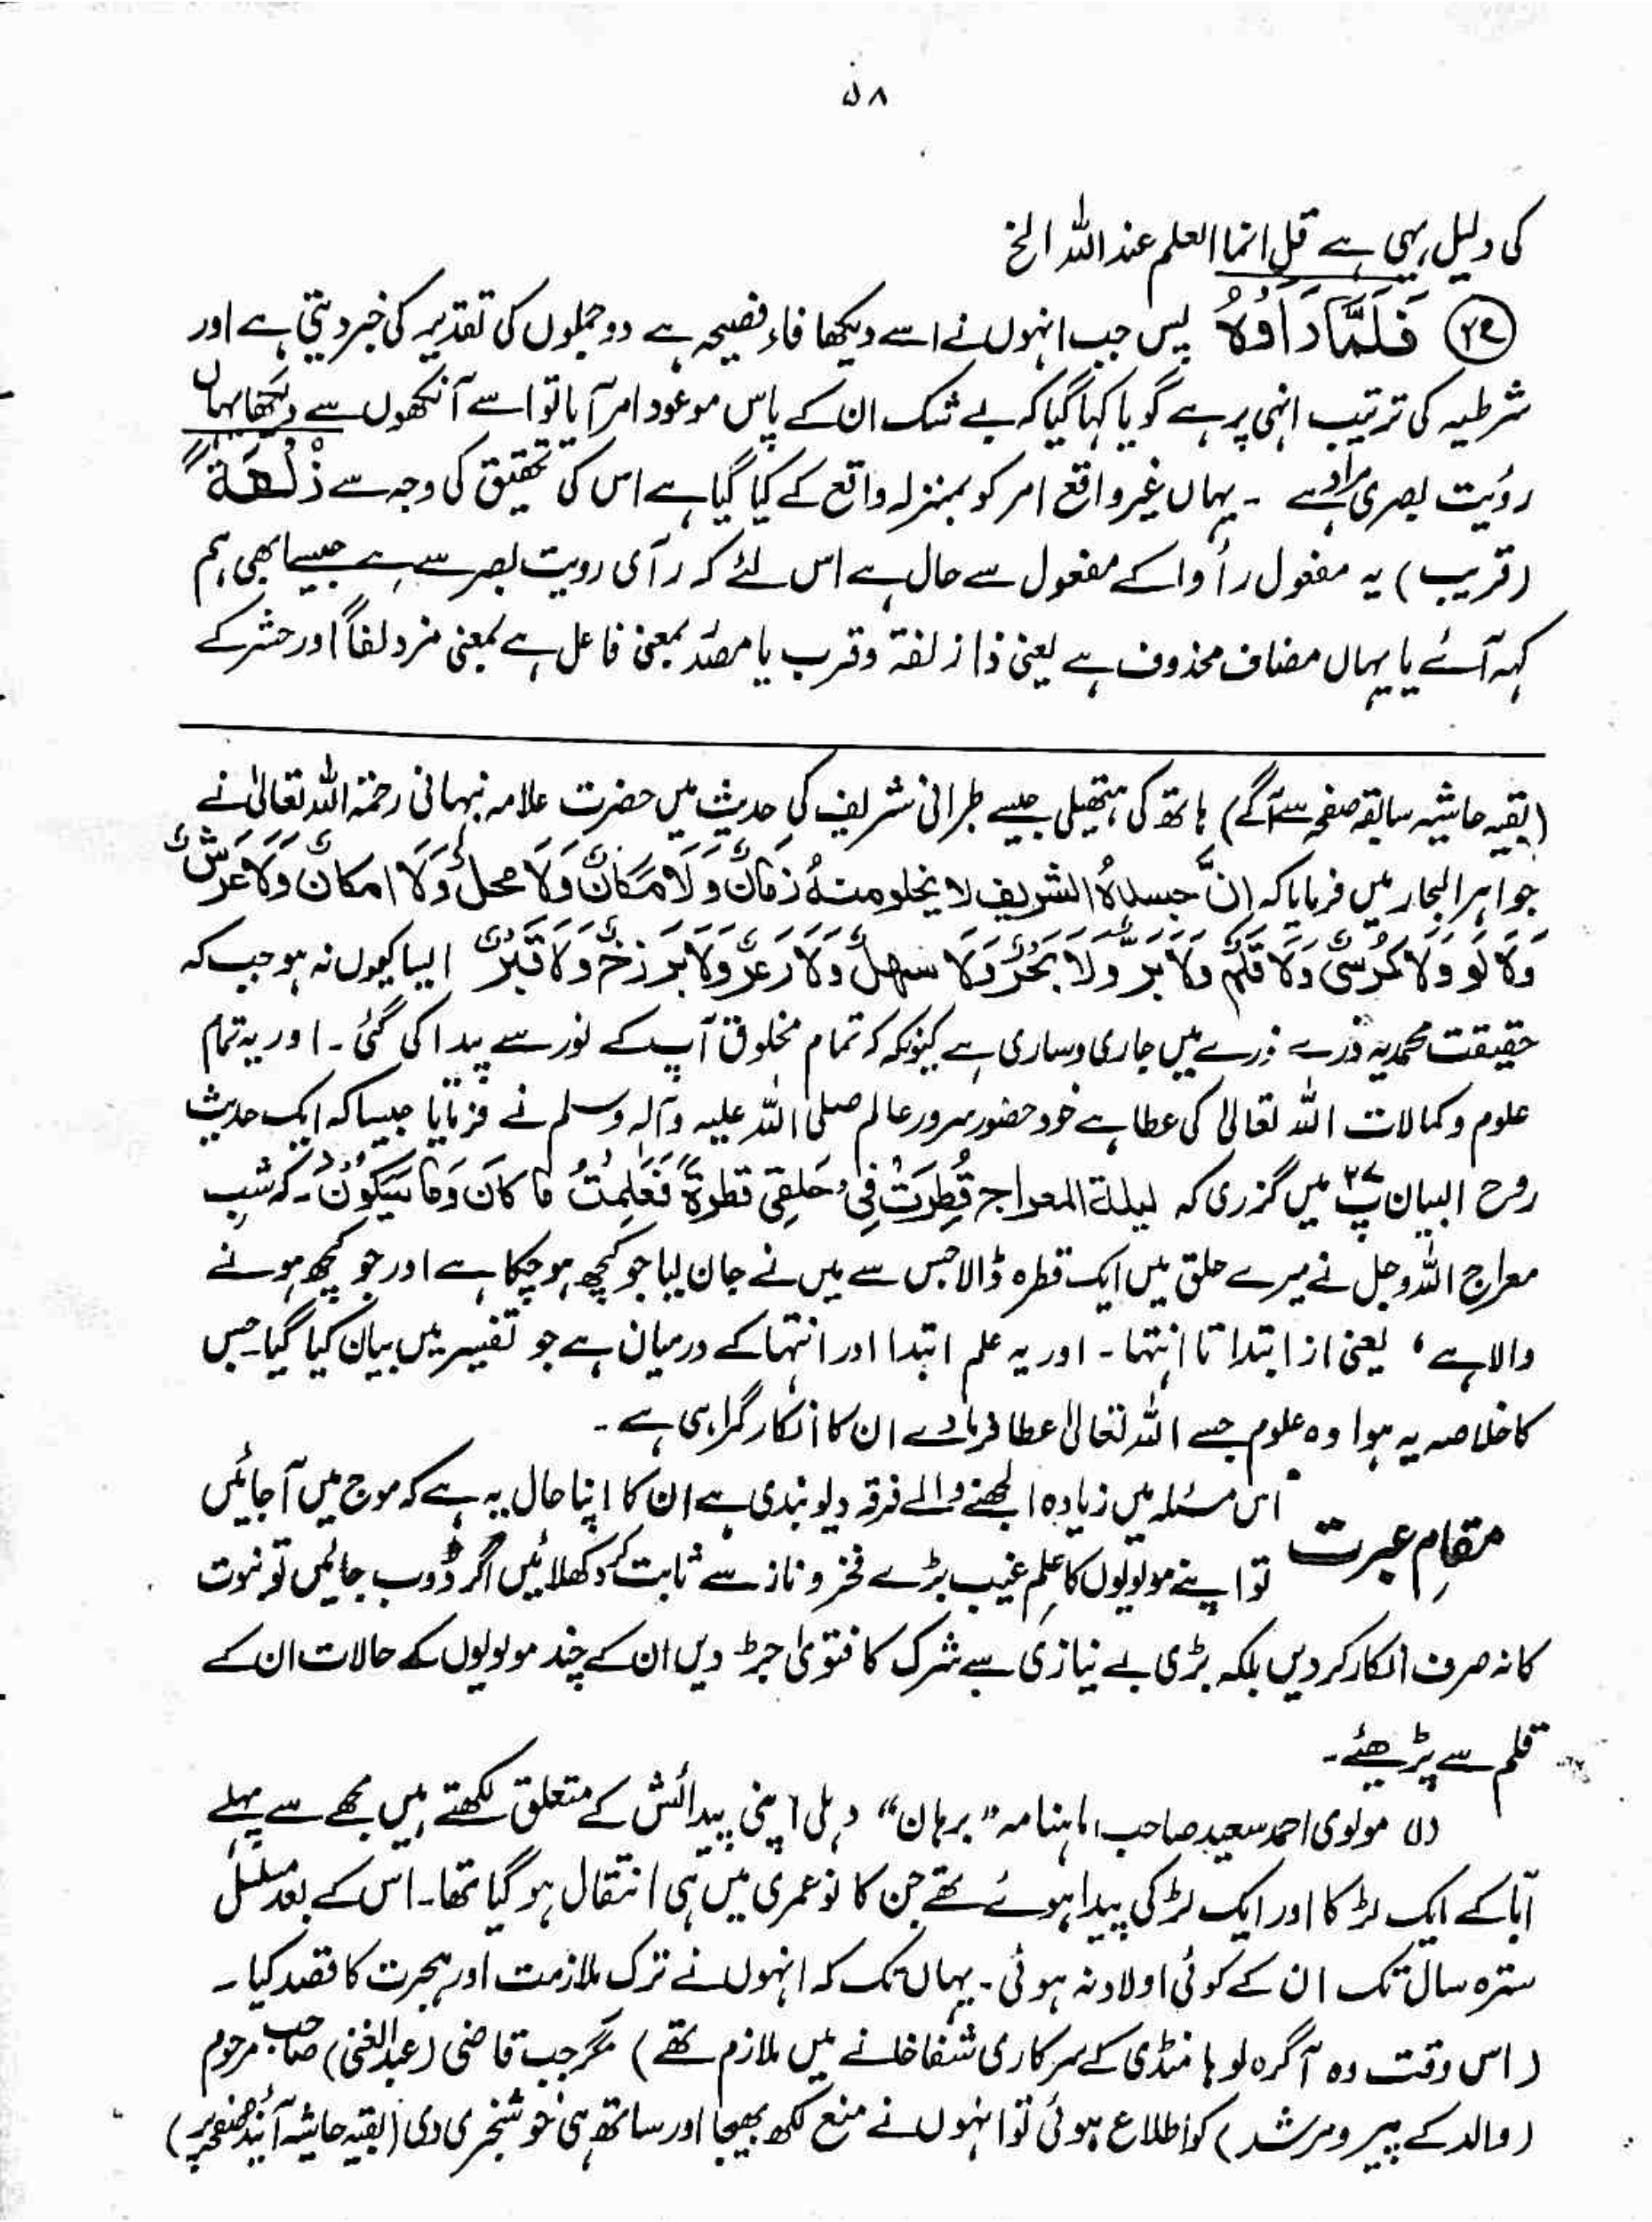 ۵۸
کی دلیل یہی ہے قل انما العلم عند اللہ الخ
(۲۷) فَلَمَّا رَاَوْہُ پس جب انہوں نے اسے دیکھا فاء فصیحہ ہے دو جملوں کی تقدیر کی خبر دیتی ہے اور
شرطیہ کی ترتیب انہی پر ہے گویا کہا گیا کہ بے شک ان کے پاس موعود امر آیا تو اسے آنکھوں سے دیکھا یہاں
رؤیت بصری مراد ہے ۔ یہاں غیر واقع امر کو بمنزلہ واقع کے کیا گیا ہے اس کی تحقیق کی وجہ سے زُلْفَةً
(قریب) یہ مفعول رأوا کے مفعول سے حال ہے اس لئے کہ رآی رویت بصر سے ہے جیسا ابھی ہم
کہہ آئے یا یہاں مضاف محذوف ہے یعنی ذا زلفۃ وقرب یا مصدر بمعنی فاعل ہے بمعنی مزدلفاً اور حشر کے
(بقیہ حاشیہ سابقہ صفحہ سے آگے) ہاتھ کی ہتھیلی جیسے طبرانی شریف کی حدیث میں حضرت علامہ نبہانی رحمۃ اللہ تعالیٰ نے
جواہر البحار میں فرمایا کہ اِنَّ جسدہُ الشریف لا یخلو منہُ زمَانٌ وَلَا مَکَانٌ وَلَا محلٌ وَلَا امکانٌ وَلَا عَرشٌ
وَلَا لَو وَلَا کُرْسیٌ وَلَا قَلَمٌ وَلَا بَرٌّ وَلَا بَحْرٌ وَلَا سہلٌ وَلَا رَعرٌ وَلَا بَرزخٌ وَلَا قَبْرٌ ایسا کیوں نہ ہو جب کہ
حقیقت محمدیہ ذرے ذرے میں جاری وساری ہے کیونکہ کہ تمام مخلوق آپ کے نور سے پیدا کی گئی ۔ اور یہ تمام
علوم وکمالات اللہ تعالیٰ کی عطا ہے خود حضور سرور عالم صلی اللہ علیہ وآلہ وسلم نے فرمایا جیسا کہ ایک حدیث
روح البیان پ۲۷ میں گزری کہ لیلۃ المعراج قُطِرَتْ فِی حَلقِی قطرۃً فَعَلِمتُ مَا کَانَ وَمَا سَیَکُوْنُ ۔ کہ شب
معراج اللہ وجل نے میرے حلق میں ایک قطرہ ڈالا جس سے میں نے جان لیا جو کچھ ہو چکا ہے اور جو کچھ ہونے
والا ہے ، یعنی از ابتدا تا انتہا ۔ اور یہ علم ابتدا اور انتہا کے درمیان ہے جو تفسیر میں بیان کیا گیا ۔ جس
کا خلاصہ یہ ہوا وہ علوم جسے اللہ تعالیٰ عطا فرمادے ان کا انکار گمراہی ہے ۔
مقامِ عبرت اس مسئلہ میں زیادہ الجھنے والے فرقہ دیوبندی ہے ان کا اپنا حال یہ ہے کہ موج میں آجائیں
تو اپنے مولویوں کا علم غیب بڑے فخر و ناز سے ثابت کر دکھلائیں اگر ڈوب جائیں تو نبوت
کا نہ صرف انکار کر دیں بلکہ بڑی بے نیازی سے شرک کا فتویٰ جڑ دیں ان کے چند مولویوں کے حالات ان کے
قلم سے پڑھیئے ۔
(۱) مولوی احمد سعید صاحب ماہنامہ ”برہان“ دہلی اپنی پیدائش کے متعلق لکھتے ہیں مجھ سے پہلے
اباکے ایک لڑکا اور ایک لڑکی پیدا ہوئے تھے جن کا نوعمری میں ہی انتقال ہو گیا تھا ۔ اس کے بعد مسلسل
سترہ سال تک ان کے کوئی اولاد نہ ہوئی ۔ یہاں تک کہ انہوں نے ترک ملازمت اور ہجرت کا قصد کیا ۔
(اس وقت وہ آگرہ لوہا منڈی کے سرکاری شفاخانے میں ملازم تھے) مگر جب قاضی (عبدالغنی) صاحب مرحوم
(والد کے پیر و مرشد) کو اطلاع ہوئی تو انہوں نے منع لکھ بھیجا اور ساتھ ہی خوشخبری دی (بقیہ حاشیہ آئندہ صفحہ پر)